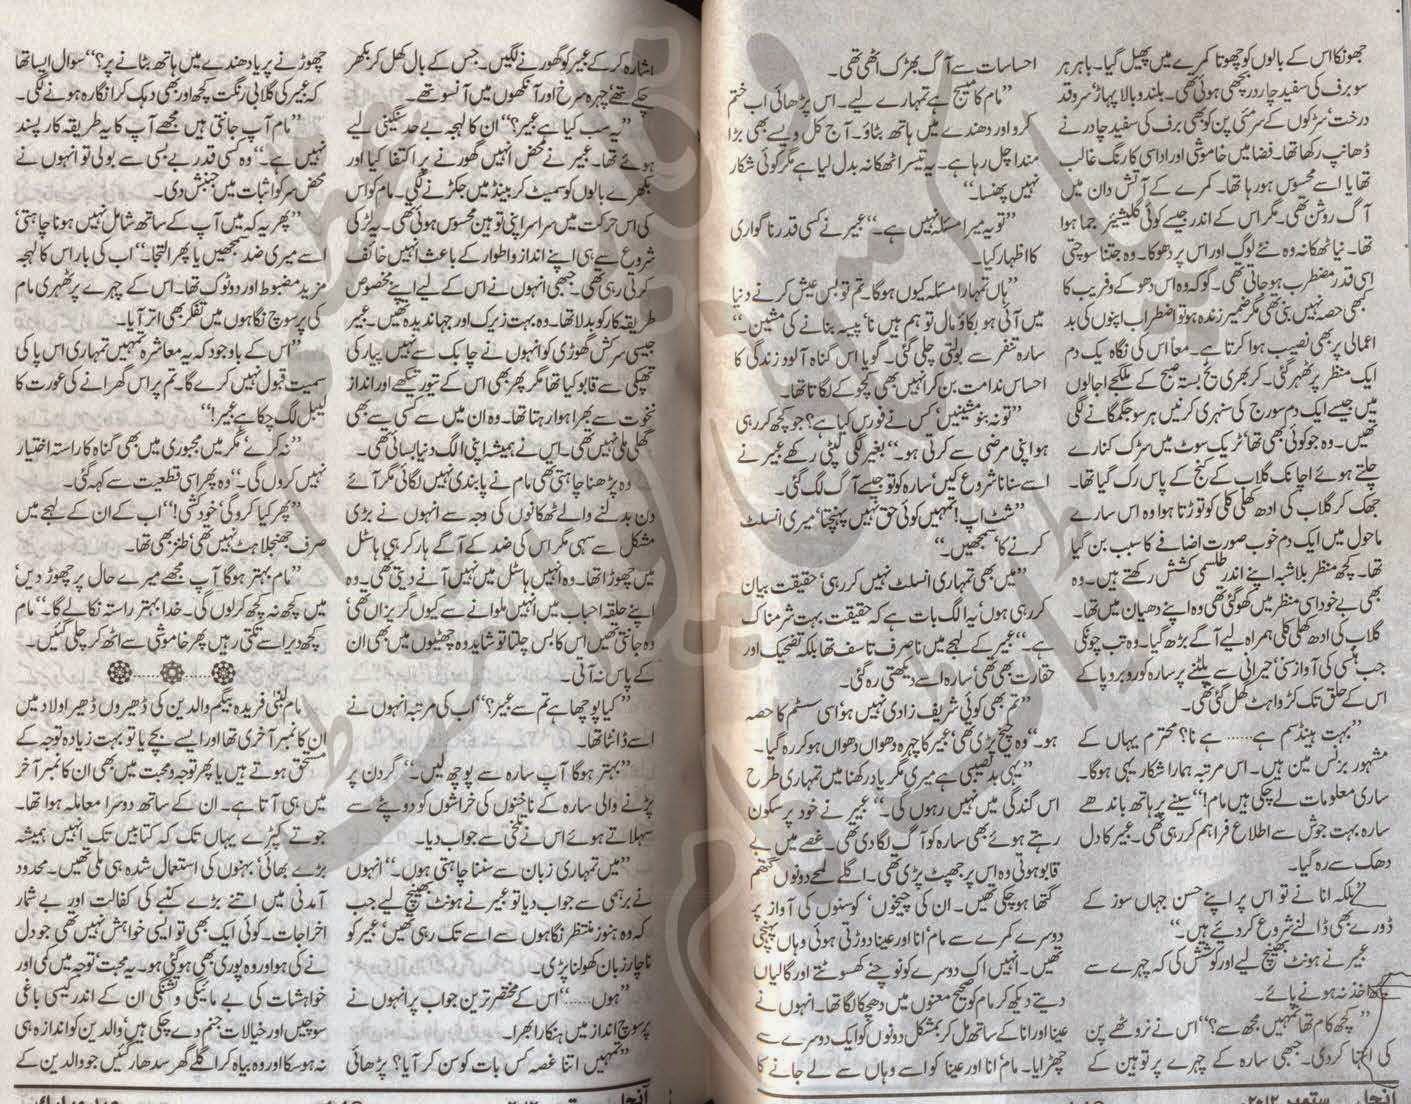 جھونکا اس کے بالوں کو چھوتا کمرے میں پھیل گیا۔ باہر ہر
سو برف کی سفید چادر بچھی ہوئی تھی۔ بلند و بالا پہاڑ سرو قد
درخت سڑکوں کے سرمئی پن کو بھی برف کی سفید چادر نے
ڈھانپ رکھا تھا۔ فضا میں خاموشی اور اداسی کا رنگ غالب
تھا یا اسے محسوس ہو رہا تھا۔ کمرے کے آتش دان میں
آگ روشن تھی۔ مگر اس کے اندر جیسے کوئی گلیشیئر جما ہوا
تھا۔ نیا ٹھکانہ وہ نئے لوگ اور اس پر دھوکا۔ وہ جتنا سوچتی
اسی قدر مضطرب ہو جاتی تھی۔ گو کہ وہ اس دھوکے و فریب کا
کبھی حصہ نہیں بنی تھی مگر ضمیر زندہ ہو تو اضطراب اپنوں کی بد
اعمالی پر بھی نصیب ہوا کرتا ہے۔ معاً اس کی نگاہ یک دم
ایک منظر پر ٹھہر گئی۔ کر بھری یخ بستہ صبح کے ملگجے اجالوں
میں جیسے ایک دم سورج کی سنہری کرنیں ہر سو جگمگانے لگی
تھیں۔ وہ جو کوئی بھی تھا ٹریک سوٹ میں سڑک کنارے
چلتے ہوئے اچانک گلاب کے کنج کے پاس رک گیا تھا۔
جھک کر گلاب کی ادھ کھلی کلی کو توڑتا ہوا وہ اس سارے
ماحول میں ایک دم خوب صورت اضافے کا سبب بن گیا
تھا۔ کچھ منظر بلا شبہ اپنے اندر طلسمی کشش رکھتے ہیں۔ وہ
بھی بے خود اسی منظر میں کھو گئی تھی وہ اپنے دھیان میں تھا۔
گلاب کی ادھ کھلی کلی ہمراہ لیے آگے بڑھ گیا۔ وہ تب چونکی
جب ہنسی کی آواز سنی حیرانی سے پلٹنے پر سارہ کو روبرو پا کے
اس کے حلق تک کڑواہٹ گھل گئی تھی۔
”بہت ہینڈسم ہے...... ہے نا؟ محترم یہاں کے
مشہور بزنس مین ہیں۔ اس مرتبہ ہمارا شکار یہی ہوگا۔
ساری معلومات لے چکی ہیں مام!“ سینے پر ہاتھ باندھے
سارہ بہت جوش سے اطلاع فراہم کر رہی تھی۔ عبیر کا دل
دھک سے رہ گیا۔
”بلکہ انا نے تو اس پر اپنے حسن جہاں سوز کے
ڈورے بھی ڈالنے شروع کر دیئے ہیں۔“
عبیر نے ہونٹ بھینچ لیے اور کوشش کی کہ چہرے سے
اخذ نہ ہونے پائے۔
”کچھ کام تھا تمہیں مجھ سے؟“ اس نے نروٹھے پن
کی انتہا کر دی۔ جبھی سارہ کے چہرے پر توہین کے
احساسات سے آگ بھڑک اٹھی تھی۔
”مام کا میسج ہے تمہارے لیے۔ اس پڑھائی اب ختم
کرو اور دھندے میں ہاتھ بٹاؤ۔ آج کل ویسے بھی بڑا
مندا چل رہا ہے۔ یہ تیسرا ٹھکانہ بدل لیا ہے مگر کوئی شکار
نہیں پھنسا۔“
”تو یہ میرا مسئلہ نہیں ہے۔“ عبیر نے کسی قدر ناگواری
کا اظہار کیا۔
”ہاں تمہارا مسئلہ کیوں ہوگا۔ تم تو بس عیش کرنے دنیا
میں آئی ہو بکاؤ مال تو ہم ہیں نا‘ پیسہ بنانے کی مشین۔“
سارہ تنفر سے بولتی چلی گئی۔ گویا اس گناہ آلود زندگی کا
احساس ندامت بن کر انہیں بھی کچوکے لگاتا تھا۔
”تو نہ بنو مشینیں‘ کس نے فورس کیا ہے؟ جو کچھ کر رہی
ہو اپنی مرضی سے کرتی ہو۔“ بغیر لگی لپٹی رکھے عبیر نے
اسے سنانا شروع کیں‘ سارہ کو تو جیسے آگ لگ گئی۔
”شٹ اپ! تمہیں کوئی حق نہیں پہنچتا‘ میری انسلٹ
کرنے کا‘ سمجھیں۔“
”میں بھی تمہاری انسلٹ نہیں کر رہی‘ حقیقت بیان
کر رہی ہوں‘ یہ الگ بات ہے کہ حقیقت بہت شرمناک
ہے۔“ عبیر کے لہجے میں نا صرف تاسف تھا بلکہ تضحیک اور
حقارت بھی تھی‘ سارہ اسے دیکھتی رہ گئی۔
”تم بھی کوئی شریف زادی نہیں ہو‘ اسی سسٹم کا حصہ
ہو۔“ وہ چیخ پڑی تھی‘ عبیر کا چہرہ دھواں دھواں ہو کر رہ گیا۔
”یہی بدنصیبی ہے میری مگر یاد رکھنا میں تمہاری طرح
اس گندگی میں نہیں رہوں گی۔“ عبیر نے خود پر سکون
رہتے ہوئے بھی سارہ کو آگ لگا دی تھی۔ غصے میں بے
قابو ہوتی وہ اس پر جھپٹ پڑی تھی۔ اگلے لمحے دونوں گتھم
گتھا ہو چکی تھیں۔ ان کی چیخوں‘ کوسنوں کی آواز پر
دوسرے کمرے سے مام‘ انا اور عینا دوڑتی ہوئی وہاں پہنچی
تھیں۔ انہیں اک دوسرے کو نوچتے کھسوٹتے اور گالیاں
دیتے دیکھ کر مام کو صحیح معنوں میں دھچکا لگا تھا۔ انہوں نے
عینا اور انا کے ساتھ مل کر بمشکل دونوں کو ایک دوسرے سے
چھڑایا۔ مام‘ انا اور عینا کو اسے وہاں سے لے جانے کا
اشارہ کر کے عبیر کو گھورنے لگیں۔ جس کے بال کھل کر بکھر
چکے تھے‘ چہرہ سرخ اور آنکھوں میں آنسو تھے۔
”یہ سب کیا ہے عبیر؟“ ان کا لہجہ بے حد سنگینی لیے
ہوئے تھا۔ عبیر نے محض انہیں گھورنے پر اکتفا کیا اور
بکھرے بالوں کو سمیٹ کر بینڈ میں جکڑنے لگی۔ مام کو اس
کی اس حرکت میں سراسر اپنی توہین محسوس ہوئی تھی۔ یہ لڑکی
شروع سے ہی اپنے انداز و اطوار کے باعث انہیں خائف
کرتی رہی تھی۔ جبھی انہوں نے اس کے لیے اپنے مخصوص
طریقہ کار کو بدلا تھا۔ وہ بہت زیرک اور جہاندیدہ تھیں۔ عبیر
جیسی سرکش گھوڑی کو انہوں نے چابک سے نہیں پیار کی
تھپکی سے قابو کیا تھا مگر پھر بھی اس کے تیور تیکھے اور انداز
نخوت سے بھرا ہوا رہتا تھا۔ وہ ان میں سے کسی سے بھی
گھلی ملی نہیں تھی۔ اس نے ہمیشہ اپنی الگ دنیا بسائی تھی۔
وہ پڑھنا چاہتی تھی مام نے پابندی نہیں لگائی مگر آئے
دن بدلنے والے ٹھکانوں کی وجہ سے انہوں نے بڑی
مشکل سے سہی مگر اس کی ضد کے آگے ہار کر ہی ہاسٹل
میں چھوڑا تھا۔ وہ انہیں ہاسٹل میں نہیں آنے دیتی تھی۔ وہ
اپنے حلقہ احباب میں انہیں ملوانے سے کیوں گریزاں تھی‘
وہ جانتی تھیں اس کا بس چلتا تو شاید وہ چھٹیوں میں بھی ان
کے پاس نہ آتی۔
”کیا پوچھا ہے تم سے عبیر؟“ اب کی مرتبہ انہوں نے
اسے ڈانٹا تھا۔
”بہتر ہوگا آپ سارہ سے پوچھ لیں۔“ گردن پر
پڑنے والی سارہ کے ناخنوں کی خراشوں کو دوپٹے سے
سہلاتے ہوئے اس نے تلخی سے جواب دیا۔
”میں تمہاری زبان سے سننا چاہتی ہوں۔“ انہوں
نے برہمی سے جواب دیا تو عبیر نے ہونٹ بھینچ لیے جب
کہ وہ ہنوز منتظر نگاہوں سے اسے تک رہی تھیں‘ عبیر کو
ناچار زبان کھولنا پڑی۔
”ہوں......“ اس کے مختصر ترین جواب پر انہوں نے
پر سوچ انداز میں ہنکارا بھرا۔
”تمہیں اتنا غصہ کس بات کو سن کر آیا؟ پڑھائی
چھوڑنے پر یا دھندے میں ہاتھ بٹانے پر؟“ سوال ایسا تھا
کہ عبیر کی گلابی رنگت کچھ اور بھی دہک کر انگارہ ہونے لگی۔
”مام آپ جانتی ہیں مجھے آپ کا یہ طریقہ کار پسند
نہیں ہے۔“ وہ کسی قدر بے بسی سے بولی تو انہوں نے
محض سر کو اثبات میں جنبش دی۔
”پھر یہ کہ میں آپ کے ساتھ شامل نہیں ہونا چاہتی‘
اسے میری ضد سمجھیں یا پھر التجا۔“ اب کی بار اس کا لہجہ
مزید مضبوط اور دو ٹوک تھا۔ اس کے چہرے پر ٹھہری مام
کی پر سوچ نگاہوں میں تفکر بھی اتر آیا۔
”اس کے باوجود کہ یہ معاشرہ تمہیں تمہاری اس پاکی
سمیت قبول نہیں کرے گا۔ تم پر اس گھرانے کی عورت کا
لیبل لگ چکا ہے عبیر!“
”نہ کرے‘ مگر میں مجبوری میں بھی گناہ کا راستہ اختیار
نہیں کروں گی۔“ وہ پھر اسی قطعیت سے کہہ گئی۔
”پھر کیا کرو گی‘ خودکشی!“ اب کے ان کے لہجے میں
صرف جھنجلاہٹ نہیں تھی‘ طنز بھی تھا۔
”مام بہتر ہوگا آپ مجھے میرے حال پر چھوڑ دیں‘
میں کچھ نہ کچھ کر لوں گی۔ خدا بہتر راستہ نکالے گا۔“ مام
کچھ دیر اسے تکتی رہیں پھر خاموشی سے اٹھ کر چلی گئیں۔
مام لیٰنی فریدہ بیگم والدین کی ڈھیروں ڈھیر اولاد میں
ان کا نمبر آخری تھا اور ایسے بچے یا تو بہت زیادہ توجہ کے
مستحق ہوتے ہیں یا پھر توجہ و محبت میں بھی ان کا نمبر آخر
میں ہی آتا ہے۔ ان کے ساتھ دوسرا معاملہ ہوا تھا۔
جوتے کپڑے یہاں تک کہ کتابیں تک انہیں ہمیشہ
بڑے بھائی‘ بہنوں کی استعمال شدہ ہی ملی تھیں۔ محدود
آمدنی میں اتنے بڑے کنبے کی کفالت اور بے شمار
اخراجات۔ کوئی ایک بھی تو ایسی خواہش نہیں تھی جو دل
نے کی ہو اور وہ پوری بھی ہو گئی ہو۔ یہ محبت‘ توجہ میں کمی اور
خواہشات کی بے مائیگی و تشنگی ان کے اندر کیسی باغی
سوچیں اور خیالات جنم دے چکی ہیں‘ والدین کو اندازہ ہی
نہ ہو سکا اور وہ بیاہ کر اگلے گھر سدھار گئیں جو والدین کے